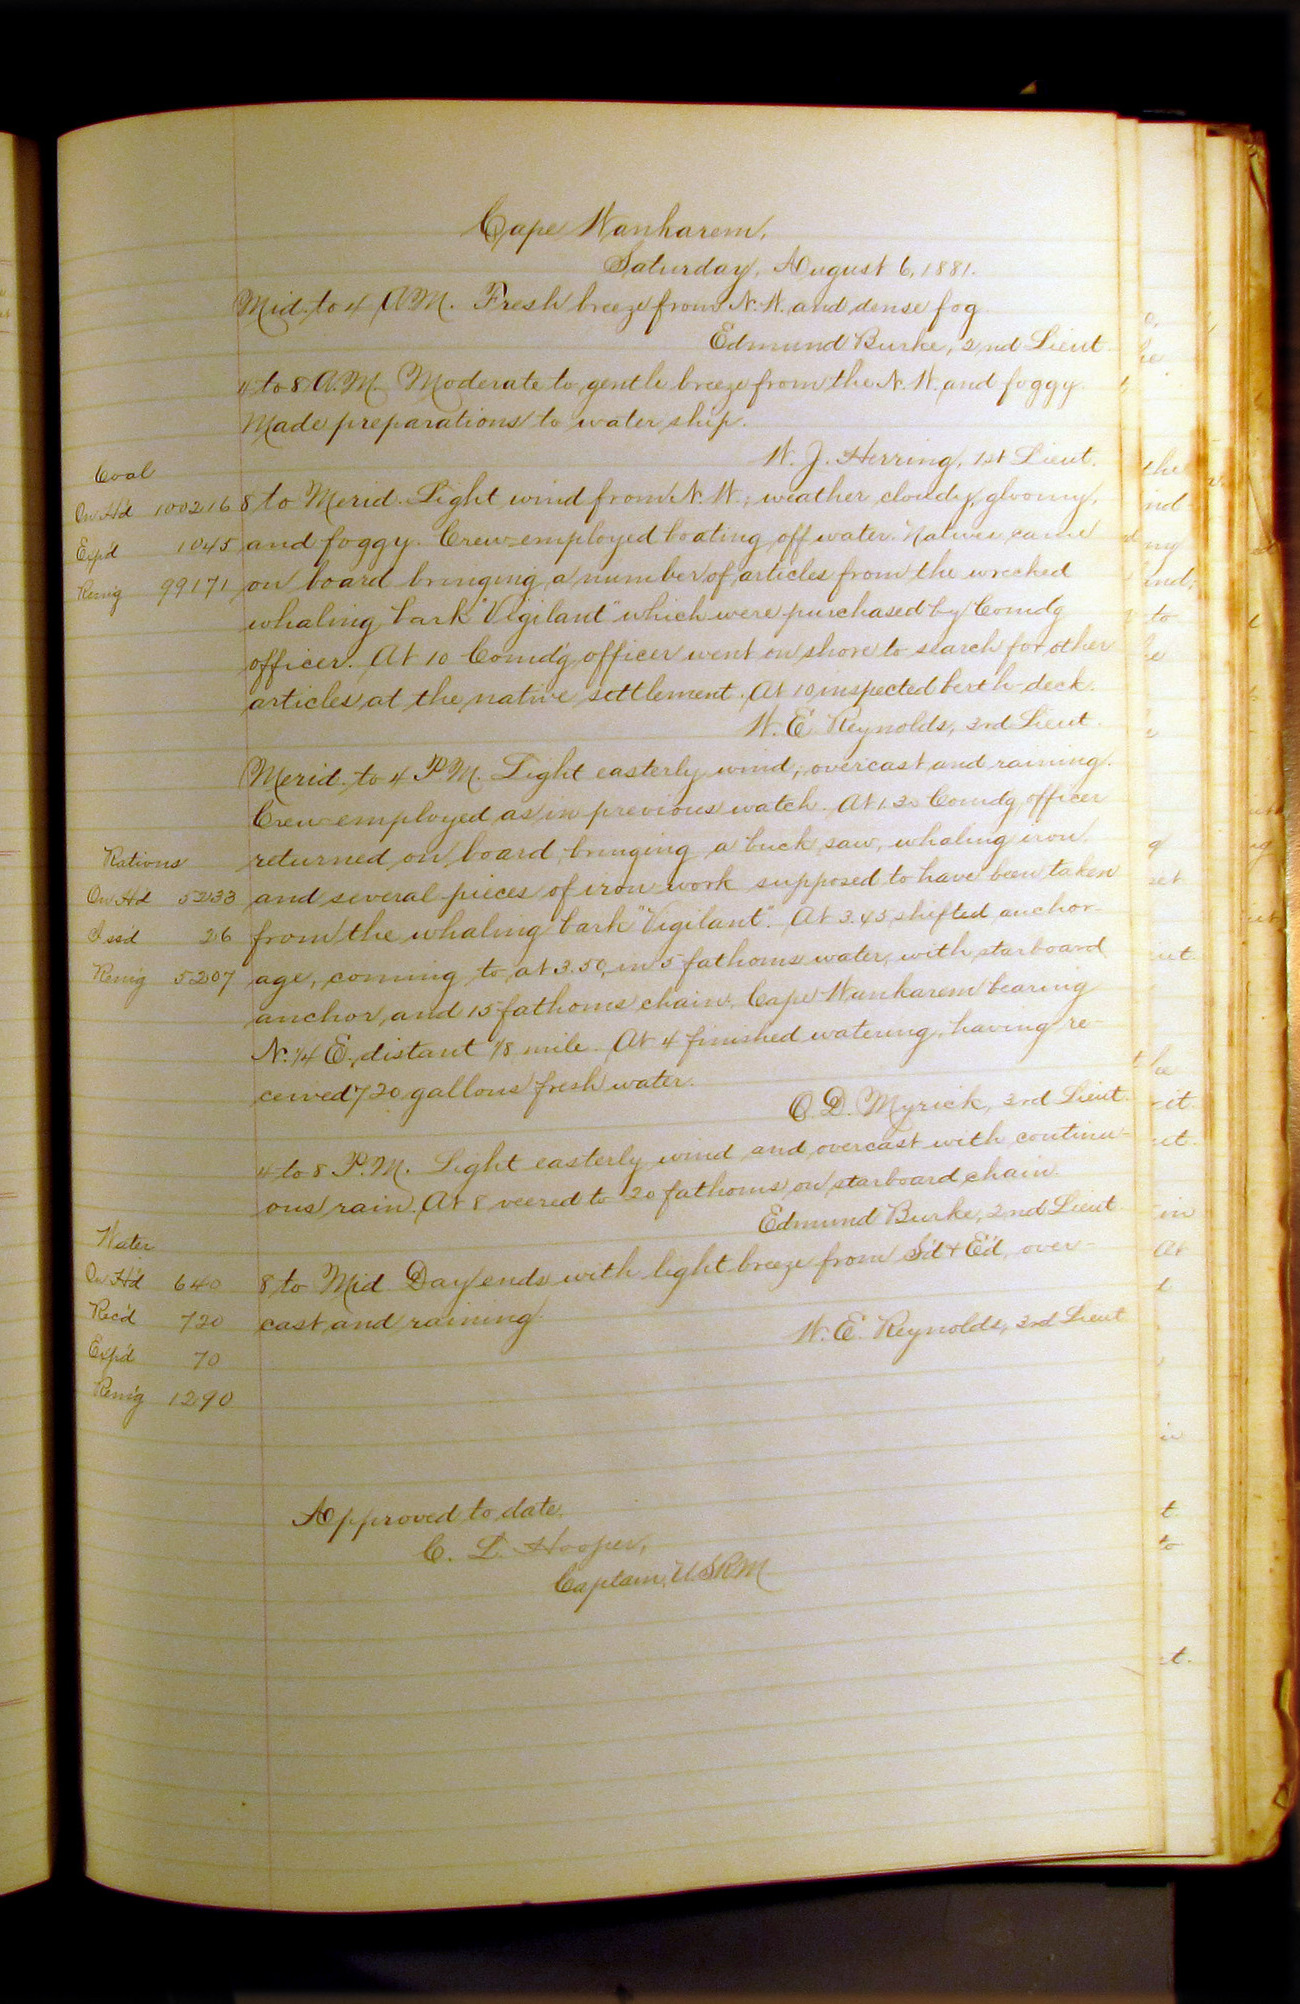 Cape Wankarem,
Saturday, August 6, 1881.
Mid. to 4 A.M. Fresh breeze from N.W. and dense fog
Edmund Burke, 2nd Lieut
4 to 8 A.M. Moderate to gentle breeze from the N.W. and foggy.
Made preparations to water ship.
W. J. Herring, 1st Lieut.
Coal
On H'd 100216
Exp'd 1045
Rem'g 99171
8 to Merid. Light wind from N.W.; weather cloudy, gloomy,
and foggy. Crew employed boating off water. Natives came
on board bringing a number of articles from the wrecked
whaling bark "Vigilant" which were purchased by Comdg
officer. At 10 Comd'g officer went on shore to search for other
articles at the native settlement. At 10 inspected berth-deck.
W. E. Reynolds, 3rd Lieut.
Merid. to 4 P.M. Light easterly wind; overcast and raining.
Crew employed as in previous watch. At 1.30 Comdg officer
returned on board, bringing a buck saw, whaling iron,
and several pieces of iron work supposed to have been taken
from the whaling bark "Vigilant". At 3.45 shifted anchor-
age, coming to at 3.50, in 5 fathoms water, with starboard
anchor, and 15 fathoms chain, Cape Wankarem bearing
N. 1/4 E., distant 1/8 mile. At 4 finished watering, having re-
ceived 720 gallons fresh water.
O. D. Myrick, 3rd Lieut.
Rations
On Hd 5233
Iss'd 26
Rem'g 5207
4 to 8 P.M. Light easterly wind and overcast with continu-
ous rain. At 8 veered to 20 fathoms on starboard chain.
Edmund Burke, 2nd Lieut.
8 to Mid Day ends with light breeze from S'd & E'd, over-
cast and raining.
W. E. Reynolds, 3rd Lieut
Water
On H'd 640
Rec'd 720
Exp'd 70
Rem'g 1290
Approved to date.
C. L. Hooper,
Captain, U.S.R.M